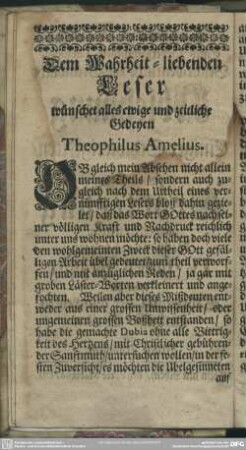 Dem Wahrheit-liebenden
Leser
wünschet alles ewige und zeitliche
Gedeyen
Theophilus Amelius.
OB gleich mein Absehen nicht allein
meines Theils / sondern auch zu-
gleich nach dem Urtheil eines ver-
nünfftigen Lesers bloß dahin gezie-
let / daß das Wort GOttes nach sei-
ner völligen Krafft und Nachdruck reichlich
unter uns wohnen möchte: so haben doch viele
den wohlgemeinten Zweck dieser GOtt gefäl-
ligen Arbeit übel gedeutet / zum theil verworf-
fen / und mit anzüglichen Reden / ja gar mit
groben Läster-Worten verkleinert und ange-
fochten. Weilen aber dieses Mißdeuten ent-
weder aus einer grossen Unwissenheit / oder
ungemeinen grossen Boßheit entstanden / so
habe die gemachte Dubia ohne alle Bittrig-
keit des Hertzens / mit Christlicher gebühren-
der Sanftmuth / untersuchen wollen / in der fe-
sten Zuversicht / es möchten die Ubelgesinneten
auf